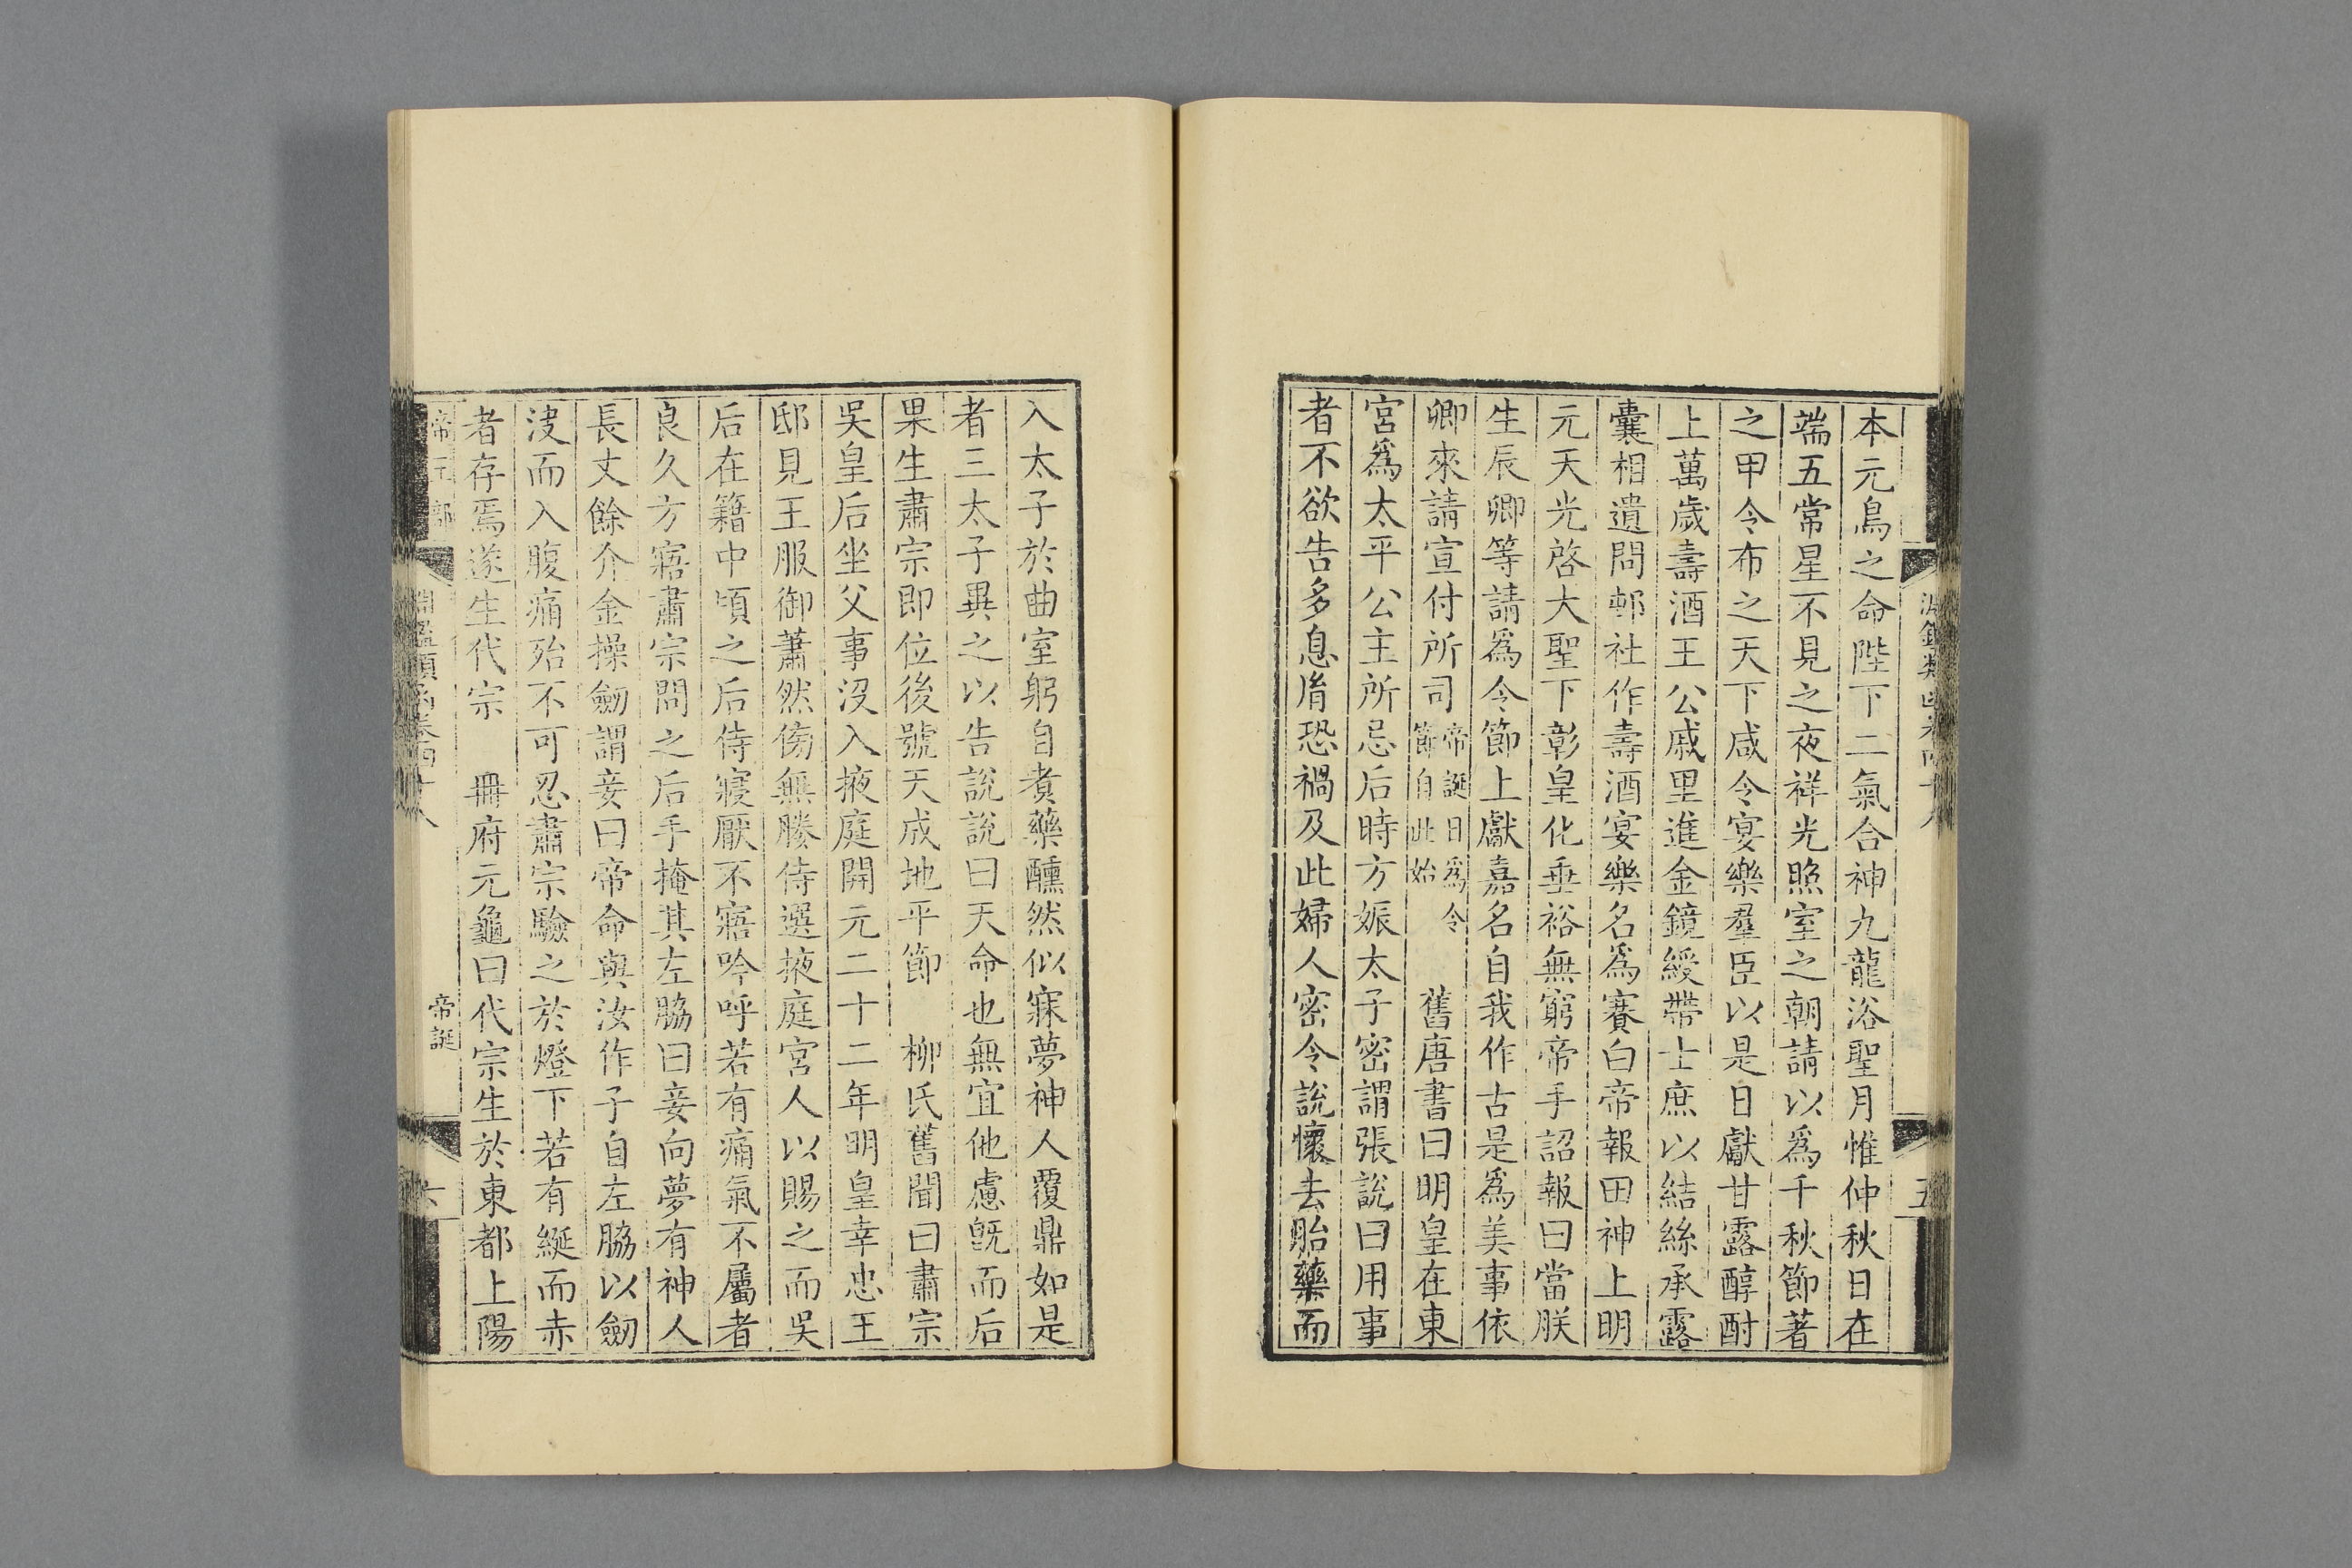 本元鳥之命陛下二氣合神九龍浴聖月惟仲秋日在
端五常星不見之夜祥光照室之朝請以爲千秋節著
之甲令布之天下咸令宴樂羣臣以是日獻甘露醇酎
上萬歲壽酒王公戚里進金鏡綬帶士庶以結絲承露
囊相遺問邨社作壽酒宴樂名爲賽白帝報田神上明
元天光啓大聖下彰皇化垂裕無窮帝手詔報曰當朕
生辰卿等請爲令節上獻嘉名自我作古是爲美事依
卿來請宣付所司帝誕日爲令節自此始 舊唐書曰明皇在東
宮爲太平公主所忌后時方娠太子密謂張說曰用事
者不欲吿多息胤恐禍及此婦人密令說懷去胎藥而
淵鑑類函卷四十八
五
入太子於曲室躬自煑藥醺然似寐夢神人覆鼎如是
者三太子異之以告說說曰天命也無宜他慮旣而后
果生肅宗即位後號天成地平節 柳氏舊聞曰肅宗
吳皇后坐父事沒入掖庭開元二十二年明皇幸忠王
邸見王服御蕭然傍無媵侍選掖庭宮人以賜之而吳
后在籍中頃之后侍寢厭不寤吟呼若有痛氣不屬者
良久方寤肅宗問之后手掩其左脇曰妾向夢有神人
長丈餘介金操劒謂妾曰帝命與汝作子自左脇以劒
決而入腹痛殆不可忍肅宗驗之於燈下若有綖而赤
者存焉遂生代宗 冊府元龜曰代宗生於東都上陽
帝王部
淵鑑類函卷四十八
帝誕
六